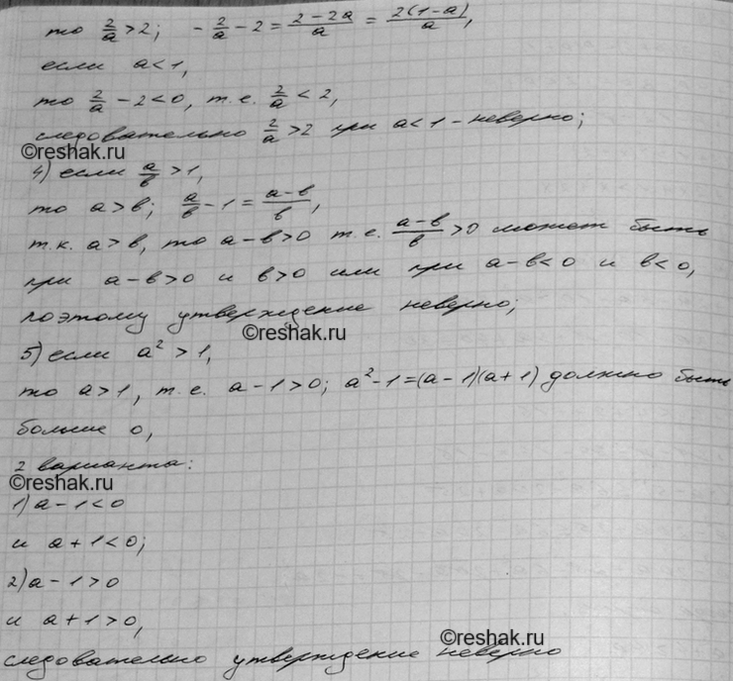 то 2/a > 2; - 2/a - 2 = (2-2a)/a = 2(1-a)/a,
если a < 1,
то 2/a - 2 < 0, т.е. 2/a < 2,
следовательно 2/a > 2 при a < 1 - неверно;
©reshak.ru
4) если a/b > 1,
то a > b; a/b - 1 = (a-b)/b,
т.к. a > b, то a-b>0 т.е. (a-b)/b > 0 может быть
при a-b>0 и b>0 или при a-b<0 и b<0,
поэтому утверждение неверно;
©reshak.ru
5) если a² > 1,
то a > 1, т.е. a-1>0; a²-1=(a-1)(a+1) должно быть
больше 0,
2 варианта:
©reshak.ru
1) a-1<0
и a+1<0;
2) a-1>0
и a+1>0,
©reshak.ru
следовательно утверждение неверно